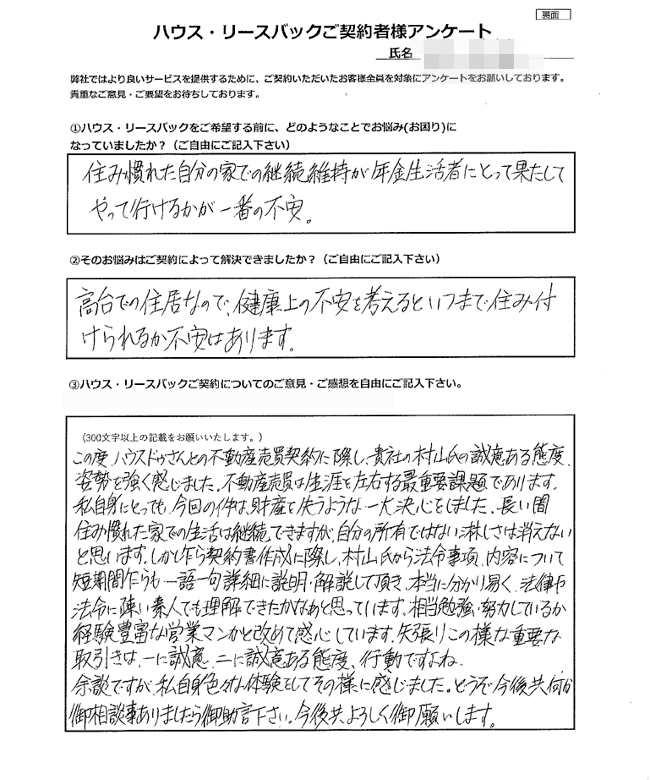 裏面
ハウス・リースバックご契約者様アンケート
氏名
弊社ではより良いサービスを提供するために、ご契約いただいたお客様全員を対象にアンケートをお願いしております。
貴重なご意見・ご要望をお待ちしております。
①ハウス・リースバックをご希望する前に、どのようなことでお悩み(お困り)に
なっていましたか？（ご自由にご記入下さい）
住み慣れた自分の家での継続維持が年金生活者にとって果たして
やって行けるかが一番の不安。
②そのお悩みはご契約によって解決できましたか？（ご自由にご記入下さい）
高台での住居なので、健康上の不安を考えるといつまで住み付
けられるか不安はあります。
③ハウス・リースバックご契約についてのご意見・ご感想を自由にご記入下さい。
（300文字以上の記載をお願いいたします。）
この度、ハウスドゥさんとの不動産売買契約に際し、貴社の村山氏の誠意ある態度、
姿勢を強く感じました。不動産売買は生涯を左右する最重要課題であります。
私自身にとっても、今回の件は、財産を失うような一大決心をしました。長い間
住み慣れた家での生活は継続できますが、自分の所有ではない淋しさは消えない
と思います。しかし乍ら契約書作成に際し、村山氏から法令事項、内容について
短期間乍らも一語一句詳細に説明・解説して頂き、本当に分かり易く、法律や
法令に疎い素人でも理解できたかなあと思っています。相当勉強・努力しているか
経験豊富な営業マンかと改めて感心しています。矢張りこの様な重要な
取引きは、一に誠意、二に誠意ある態度、行動ですよね。
余談ですが、私自身色々な体験としてその様に感じました。どうぞ今後共何か
御相談事ありましたら御助言下さい。今後共よろしく御願いします。